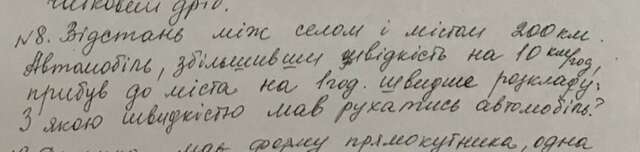 ьковий дріб.
№8. Відстань між селом і містом 200 км.
Автомобіль, збільшивши швидкість на 10 км/год,
прибув до міста на 1 год. швидше розкладу.
З якою швидкістю мав рухатись автомобіль?
має форму прямокутника, одна